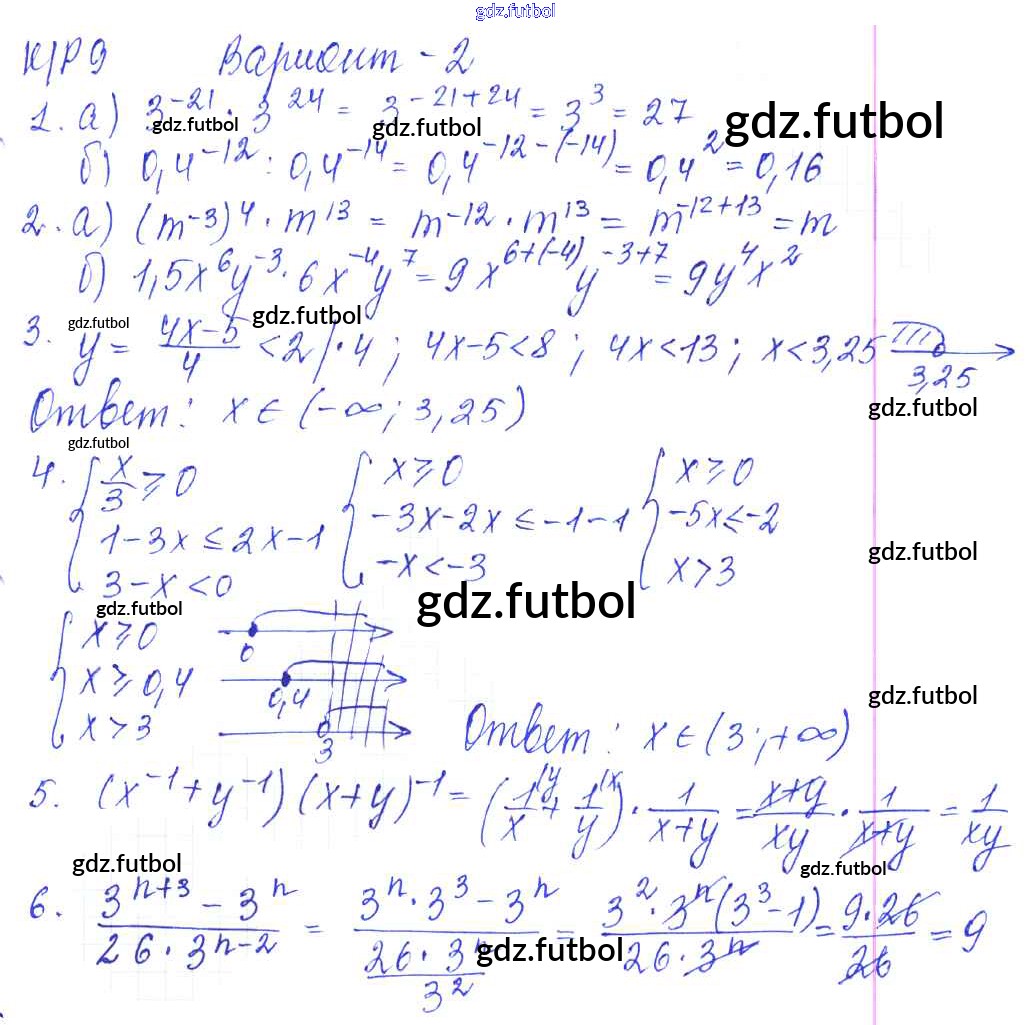 gdz.futbol
К/Р 9 Вариант - 2
1. а) 3^{-21} · 3^{24} = 3^{-21+24} = 3^3 = 27
gdz.futbol gdz.futbol gdz.futbol
б) 0,4^{-12} : 0,4^{-14} = 0,4^{-12-(-14)} = 0,4^2 = 0,16
2. а) (m^{-3})^4 · m^{13} = m^{-12} · m^{13} = m^{-12+13} = m
б) 1,5x^6y^{-3} · 6x^{-4}y^7 = 9x^{6+(-4)}y^{-3+7} = 9y^4x^2
gdz.futbol gdz.futbol
3. y = \frac{4x-5}{4} < 2 | · 4 ; 4x-5<8 ; 4x<13 ; x<3,25
3,25
Ответ: x ∈ (-∞; 3,25)
gdz.futbol
gdz.futbol
4. { \frac{x}{3} ≥ 0 { x ≥ 0 { x ≥ 0
1-3x ≤ 2x-1 -3x-2x ≤ -1-1 -5x ≤ -2
3-x < 0 -x < -3 x > 3
gdz.futbol
gdz.futbol gdz.futbol
{ x ≥ 0 0
x ≥ 0,4 0,4
x > 3 3
gdz.futbol
Ответ: x ∈ (3; +∞)
5. (x^{-1}+y^{-1})(x+y)^{-1} = (\frac{1}{x}^{(y} + \frac{1}{y}^{(x}) · \frac{1}{x+y} = \frac{x+y}{xy} · \frac{1}{x+y} = \frac{1}{xy}
gdz.futbol gdz.futbol
6. \frac{3^{n+3} - 3^n}{26 · 3^{n-2}} = \frac{3^n · 3^3 - 3^n}{\frac{26 · 3^n}{3^2}} = \frac{3^2 · 3^n(3^3-1)}{26 · 3^n} = \frac{9 · 26}{26} = 9
gdz.futbol